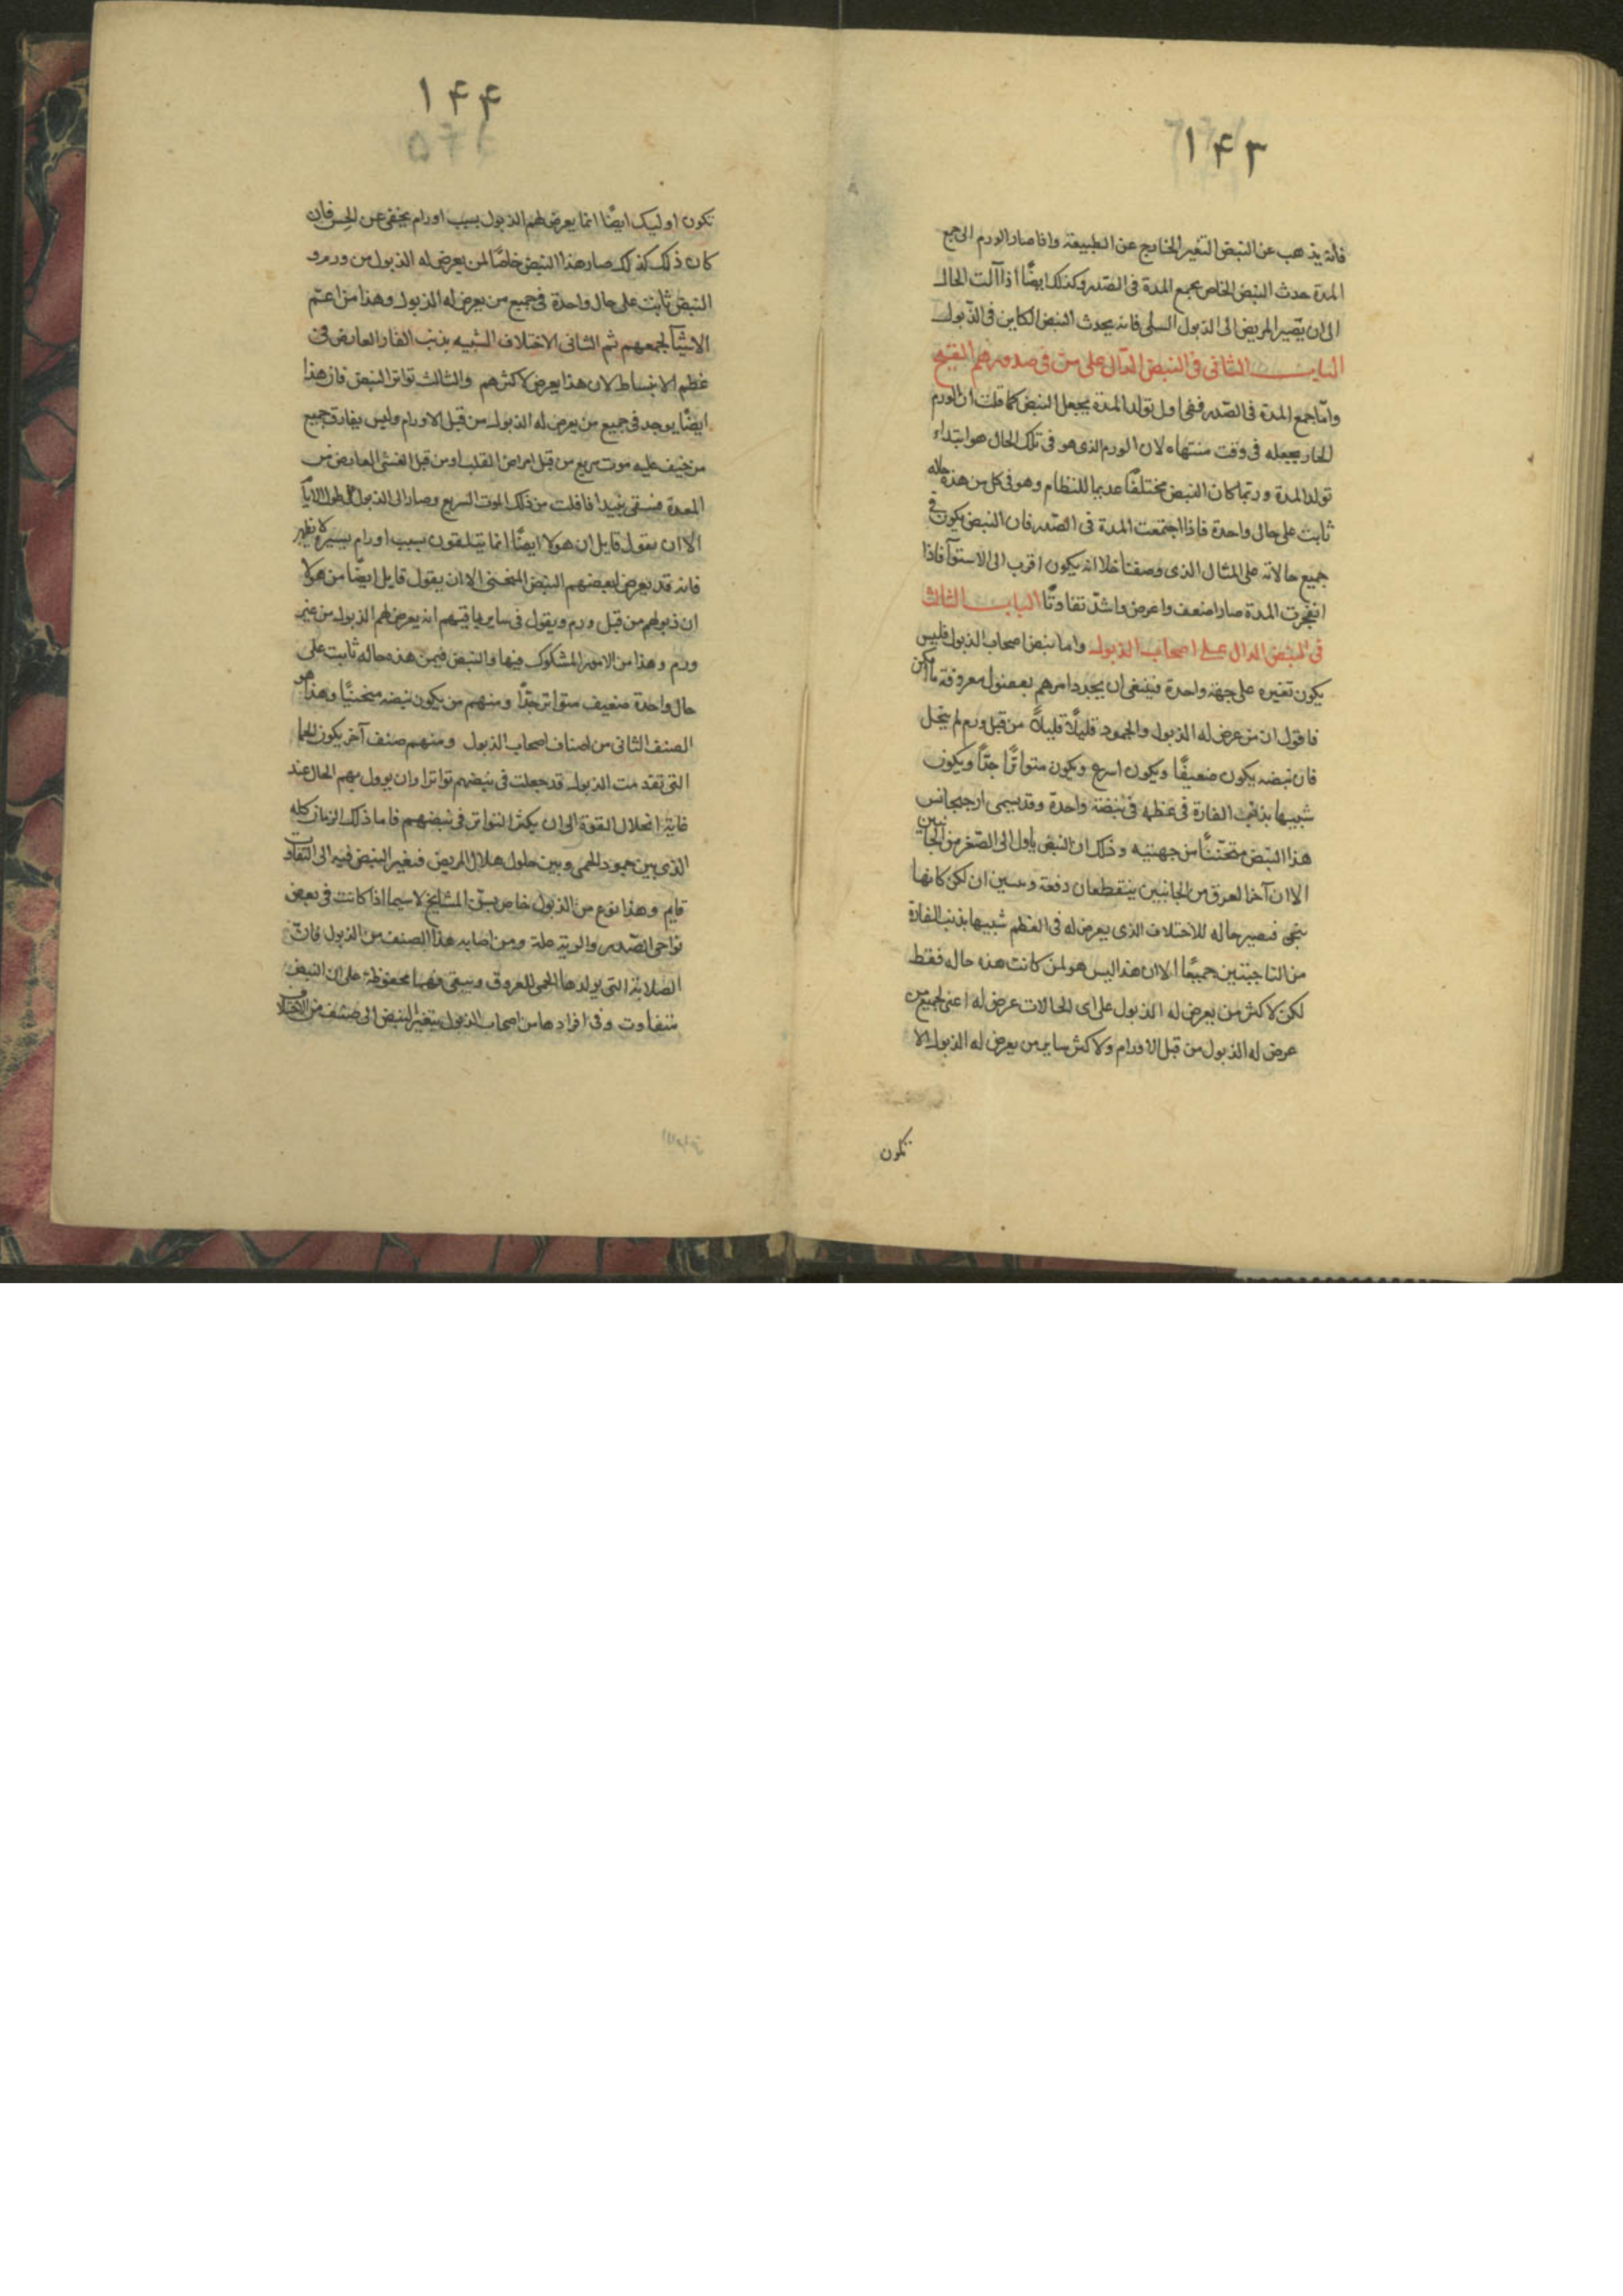 ۱۴۳
فانه يذهب عن النبض التغير الخارج عن الطبيعة واذا صار الورم الى جمع
المدة حدث النبض الخاص بجمع المدة فى الصدر وكذلك ايضًا اذا آلت الحال
الى ان يصير المريض الى الذبول السلى فانه يحدث النبض الكاين فى الذبول
البابــــ الثانى فى النبض الدال على من فى صدورهم القيح
وامّا جمع المدة فى الصدر ففى اول تولد المدة يجعل النبض كما قلت ان الورم
الحار يجعله فى وقت منتهاه لان الورم الذى هو فى تلك الحال هو ابتداء
تولد المدة وربما كان النبض مختلفًا عديما للنظام وهو فى كل من هذه حاله
ثابت على حال واحدة فاذا اجتمعت المدة فى الصدر فان النبض يكون فى
جميع حالاته على المثال الذى وصفنا خلا انه يكون اقرب الى الاستوآ فاذا
انفجرت المدة صار اضعف واعرض واشدّ تفاوتًا البابــــ الثالث
فى النبض الدال على اصحاب الذبول واما نبض اصحاب الذبول فليس
يكون تغيره على جهة واحدة فينبغى ان يحدد امرهم بفصول معروفة ما امكن
فاقول ان من عرض له الذبول والجمود قليلًا قليلًا من قبل ورم لم ينحل
فان نبضه يكون ضعيفًا ويكون اسرع ويكون متواترًا جدًّا ويكون
شبيها بذنب الفارة فى عظمه فى نبضة واحدة وقد يسمى ارجيجانس
هذا النبض منحنيًا من جهتيه وذلك ان النبض ياول الى الصغر من الجانبين
الا ان آخر العرق من الجانبين ينقطعان دفعة لكن كانهما
فيصير حاله للاختلاف الذى يعرض له فى العظم شبيها بذنب الفارة
من الناحيتين جميعًا الا ان هذا ليس هو لمن كانت هذه حاله فقط
لكن لاكثر من يعرض له الذبول على اى الحالات عرض له اعنى لجميع من
عرض له الذبول من قبل الاورام ولاكثر ساير من يعرض له الذبول الا
تكون
۱۴۴
تكون اوليك ايضًا انما يعرض لهم الذبول بسبب اورام يخفى عن الحس فان
كان ذلك كذلك صار هذا النبض خاصًا لمن يعرض له الذبول من ورم و
النبض ثابت على حال واحدة فى جميع من يعرض له الذبول وهذا من اعم
الاشيآ لجمعهم ثم الثانى الاختلاف الشبيه بذنب الفار العارض فى
عظم الانبساط لان هذا يعرض لاكثرهم والثالث تواتر النبض فان هذا
ايضًا يوجد فى جميع من يعرض له الذبول من قبل الاورام وليس يفارق جميع
من خيف عليه موت سريع من قبل امراض القلب او من قبل الغشى العارض من
المعدة فسقى نبيذا فافلت من ذلك الموت السريع وصار الى الذبول
الا ان يقول قايل ان هولا ايضًا انما يتلفون بسبب اورام يسيرة لا تظهر
فانه قد يعرض لبعضهم النبض المنحنى الا ان يقول قايل ايضًا من هولا
ان ذبولهم من قبل ورم ويقول فى ساير باقيهم انه يعرض لهم الذبول من غير
ورم وهذا من الامور المشكوك فيها والنبض فيمن هذه حاله ثابت على
حال واحدة ضعيف متواتر جدًا ومنهم من يكون نبضه منحنيًا وهذا هو
الصنف الثانى من اصناف اصحاب الذبول ومنهم صنف آخر يكون الحما
التى تقدمت الذبول قد جعلت فى نبضهم تواترا وان يوول بهم الحال عند
غاية انحلال القوة الى ان يكثر التواتر فى نبضهم فاما ذلك الزمان كله
الذى بين جمود الحمى وبين حلول هلال المريض فتغير النبض فيه الى التفاوت
قايم وهذا نوع من الذبول خاص بسنّ المشايخ لاسيما اذا كانت فى بعض
نواحى الصدر والرية علة ومن اصابه هذا الصنف من الذبول فانّ
الصلابة التى يولدها الحمى للعروق ويبقى محفوظة على ان النبض
متفاوت وفى افرادها من اصحاب الذبول يتغير النبض الى صنف من الاختلاف